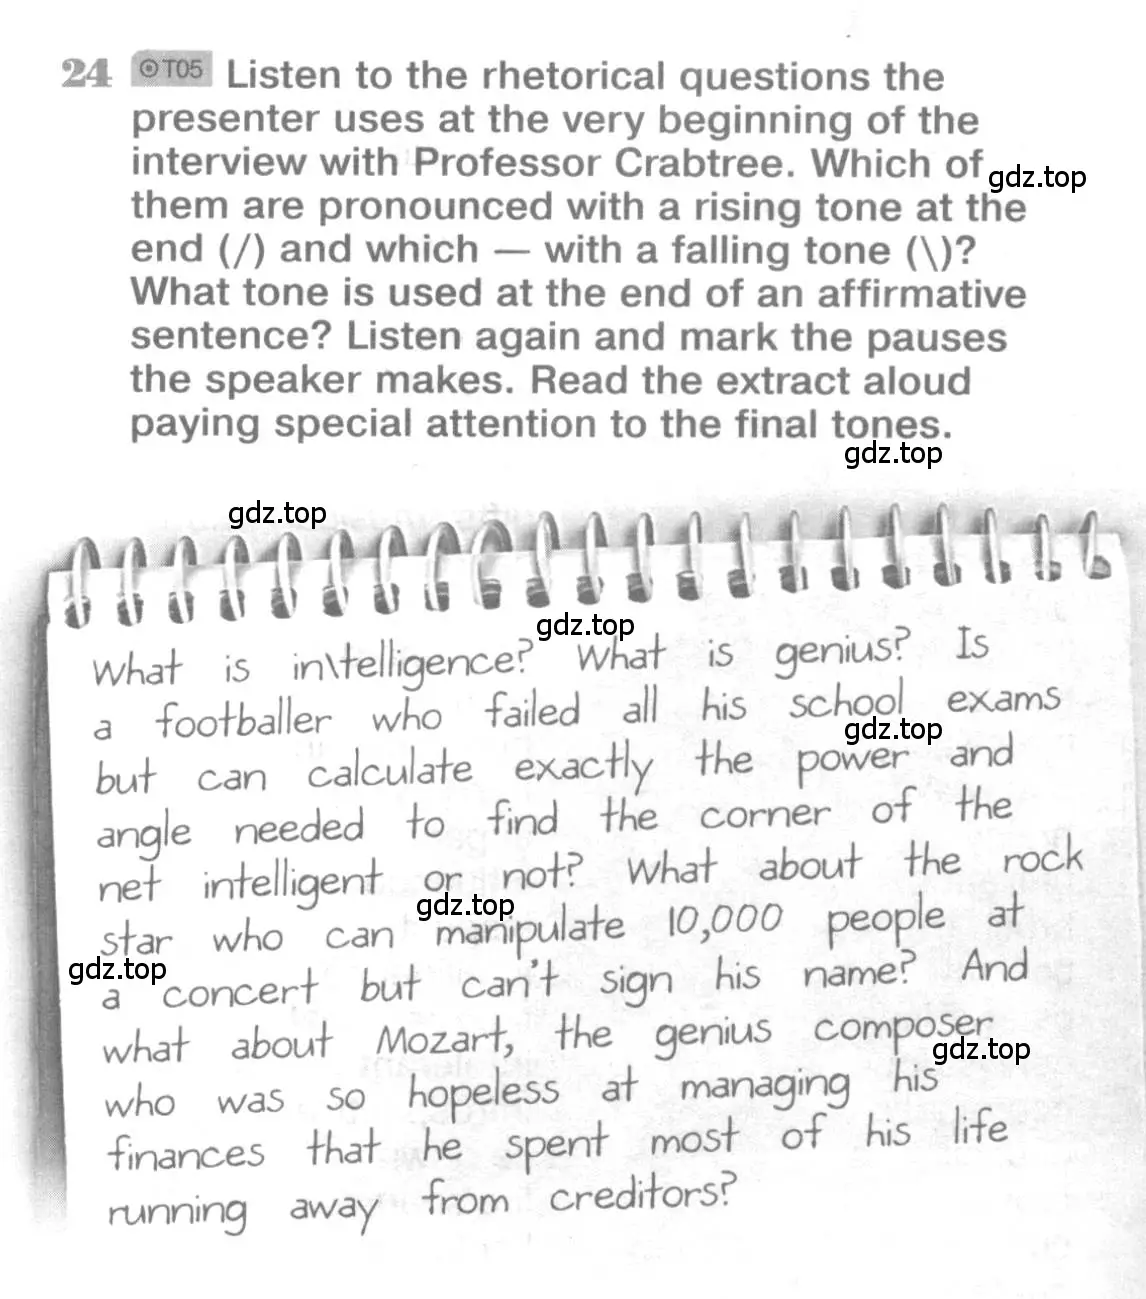 24 T05 Listen to the rhetorical questions the
presenter uses at the very beginning of the
interview with Professor Crabtree. Which of
gdz.top
them are pronounced with a rising tone at the
end (/) and which — with a falling tone (\)?
What tone is used at the end of an affirmative
sentence? Listen again and mark the pauses
the speaker makes. Read the extract aloud
paying special attention to the final tones.
gdz.top
gdz.top
gdz.top
What is in\telligence? What is genius? Is
a footballer who failed all his school exams
gdz.top
but can calculate exactly the power and
angle needed to find the corner of the
net intelligent or not? What about the rock
gdz.top
star who can manipulate 10,000 people at
gdz.top
a concert but can't sign his name? And
what about Mozart, the genius composer
gdz.top
who was so hopeless at managing his
finances that he spent most of his life
running away from creditors?